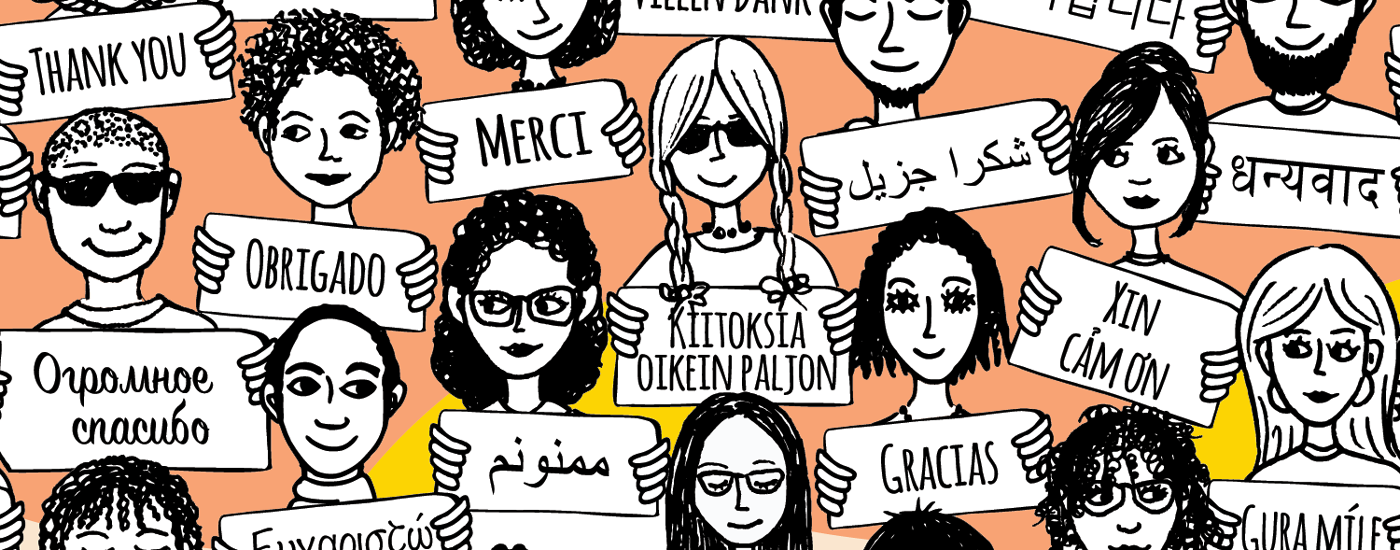 THANK YOU
VIELEN DANK
MERCI
شكرا جزيل
धन्यवाद
OBRIGADO
KIITOKSIA
OIKEIN PALJON
XIN
CẢM ƠN
Огромное
спасибо
ممنونم
GRACIAS
Ευχαριστώ
GURA MÍLE